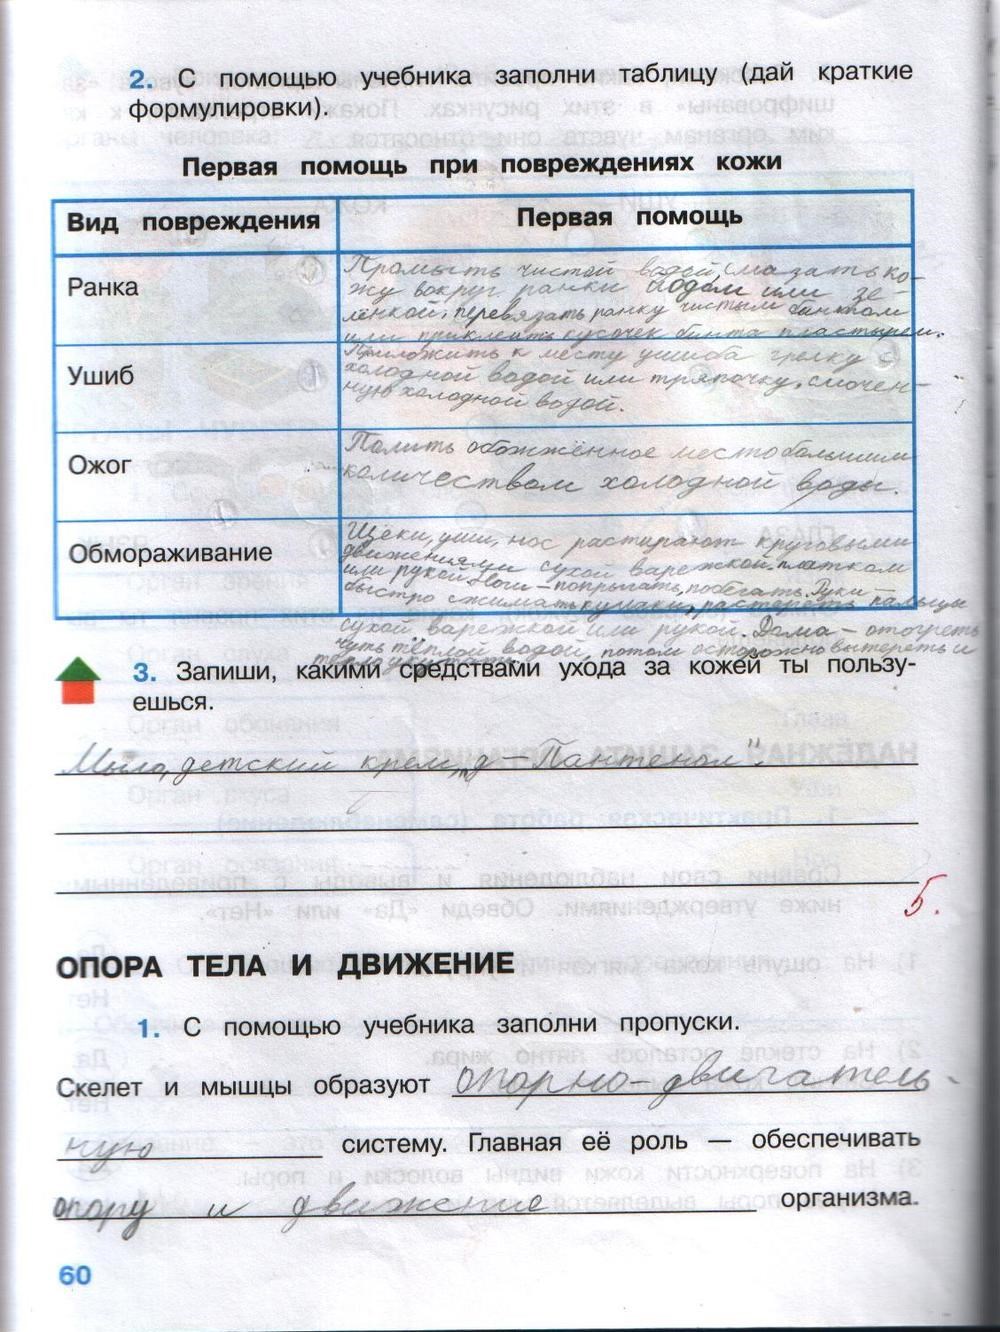 2. С помощью учебника заполни таблицу (дай краткие
формулировки).
Первая помощь при повреждениях кожи
Вид повреждения
Первая помощь
Ранка
Промыть чистой водой, смазать ко-
жу вокруг ранки йодом или зе-
лёнкой, перевязать ранку чистым бинтом
или приклеить кусочек бинта пластырем.
Ушиб
Приложить к месту ушиба грелку с
холодной водой или тряпочку, смочен-
ную холодной водой.
Ожог
Полить обожжённое место большим
количеством холодной воды.
Обмораживание
Щёки, уши, нос растирают круговыми
движениями сухой варежкой, платком
или рукой. Ноги – попрыгать, побегать. Руки –
быстро сжимать кулаки, растереть пальцы
сухой варежкой или рукой. Дома – отогреть
чуть тёплой водой, потом осторожно вытереть и
3. Запиши, какими средствами ухода за кожей ты пользу-
ешься.
Мыло, детский крем, "Д-Пантенол".
5.
ОПОРА ТЕЛА И ДВИЖЕНИЕ
1. С помощью учебника заполни пропуски.
Скелет и мышцы образуют опорно-двигатель-
ную систему. Главная её роль — обеспечивать
опору и движение организма.
60